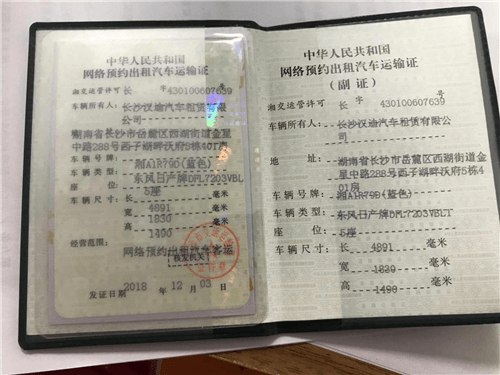 中华人民共和国
网络预约出租汽车运输证
湘交运管许可 长 字 430100607639 号
车辆所有人: 长沙汉渝汽车租赁有限公司
湖南省长沙市岳麓区西湖街道金星
中路288号西子湖畔沃府5栋401房
车辆号牌: 湘A1R79D(蓝色)
车辆类型: 东风日产牌DFL7203VBL
座 位: 5座
车辆尺寸: 长 4891
宽 1830
高 1490
经营范围: 网络预约出租汽车客运
核发机关
发证日期 2018 12 03
中华人民共和国
网络预约出租汽车运输证
(副 证)
湘交运管许可 长 字 430100607639 号
车辆所有人: 长沙汉渝汽车租赁有限公
司
地 址: 湖南省长沙市岳麓区西湖街道金
星中路288号西子湖畔沃府5栋4
01房
车辆号牌: 湘A1R79D(蓝色)
车辆类型: 东风日产牌DFL7203VBLT
座 位: 5座
车辆尺寸: 长 4891 毫米
宽 1830 毫米
高 1490 毫米